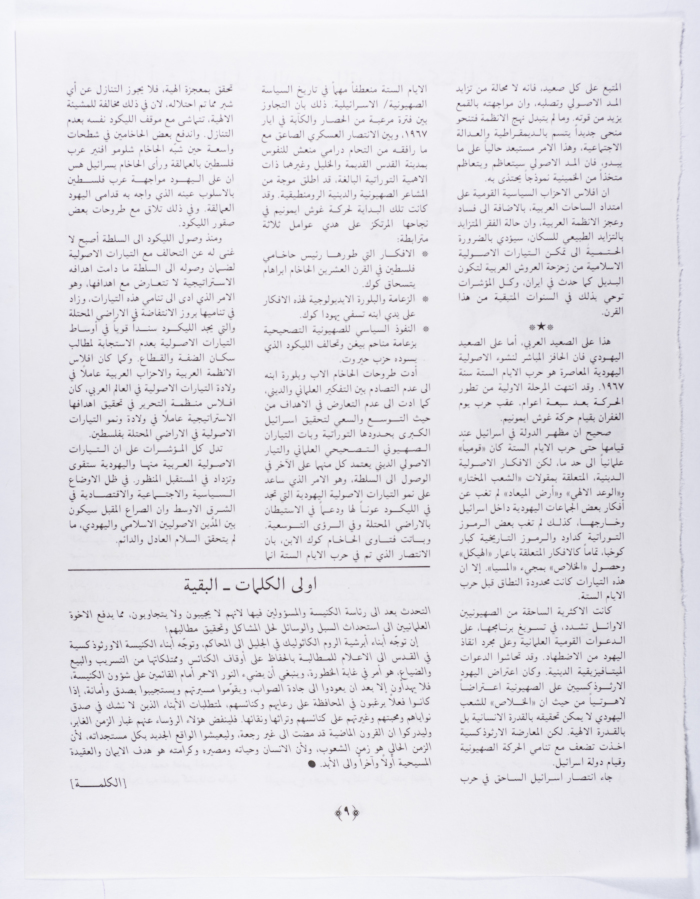 المتبع على كل صعيد، فانه لا محالة من تزايد
المد الاصولي وتصلبه، وان مواجهته بالقمع
يزيد من قوته. وما لم يتبدل نهج الانظمة فتنحو
منحى جديداً يتسم بالديمقراطية والعدالة
الاجتماعية، وهذا الامر مستبعد حالياً على ما
يبدو، فان المد الاصولي سيتعاظم ويتعاظم
متخذاً من الخمينية نموذجاً يحتذى به.
ان افلاس الاحزاب السياسية القومية على
امتداد الساحات العربية، بالاضافة الى فساد
وعجز الانظمة العربية، وان حالة الفقر المتزايد
بالتزايد الطبيعي للسكان، سيؤدي بالضرورة
الحتمية الى تمكن التيارات الاصولية
الاسلامية من زحزحة العروش العربية لتكون
البديل كما حدث في ايران، وكل المؤشرات
توحي بذلك في السنوات المتبقية من هذا
القرن.
*★*
هذا على الصعيد العربي. أما على الصعيد
اليهودي فان الحافز المباشر لنشوء الاصولية
اليهودية المعاصرة هو حرب الايام الستة سنة
١٩٦٧. وقد انتهت المرحلة الاولية من تطور
الحركة بعد سبعة اعوام، عقب حرب يوم
الغفران بقيام حركة غوش ايمونيم.
صحيح ان مظهر الدولة في اسرائيل عند
قيامها حتى حرب الايام الستة كان «قومياً»
علمانياً الى حد ما، لكن الافكار الاصولية
الدينية، المتعلقة بمقولات «الشعب المختار»
و«الوعد الالهي» و«أرض الميعاد» لم تغب عن
أفكار بعض الجماعات اليهودية داخل اسرائيل
وخارجها، كذلك لم تغب بعض الرموز
التوراتية كداود والرموز التاريخية كبار
كوخبا، تماماً كالافكار المتعلقة باعمار «الهيكل»
وحصول «الخلاص» بمجيء «المسيا». إلا ان
هذه التيارات كانت محدودة النطاق قبل حرب
الايام الستة.
كانت الاكثرية الساحقة من الصهيونيين
الاوائل تشدد، في تسويغ برنامجها، على
الدعوات القومية العلمانية وعلى مجرد انقاذ
اليهود من الاضطهاد. وقد تحاشوا الدعوات
الميتافيزيقية الدينية. وكان اعتراض اليهود
الارثوذكسيين على الصهيونية اعتراضاً
لاهوتياً من حيث ان «الخلاص» للشعب
اليهودي لا يمكن تحقيقه بالقدرة الانسانية بل
بالقدرة الالهية. لكن المعارضة الارثوذكسية
اخذت تضعف مع تنامي الحركة الصهيونية
وقيام دولة اسرائيل.
جاء انتصار اسرائيل الساحق في حرب
الايام الستة منعطفاً مهماً في تاريخ السياسة
الصهيونية/ الاسرائيلية. ذلك بان التجاوز
بين فترة مرعبة من الحصار والكآبة في ايار
١٩٦٧، وبين الانتصار العسكري الصاعق مع
ما رافقه من التحام درامي منعش للنفوس
بمدينة القدس القديمة والخليل وغيرهما ذات
الاهمية التوراتية البالغة، قد اطلق موجة من
المشاعر الصهيونية والدينية الرومنطيقية. وقد
كانت تلك البداية لحركة غوش ايمونيم في
نجاحها المرتكز على هدي عوامل ثلاثة
مترابطة:
* الافكار التي طورها رئيس حاخامي
فلسطين في القرن العشرين الحاخام ابراهام
يتسحاق كوك.
* الزعامة والبلورة الايديولوجية لهذه الافكار
على يدي ابنه تسفي يهودا كوك.
* النفوذ السياسي للصهيونية التصحيحية
بزعامة مناحم بيغن وتحالف الليكود الذي
يسوده حزب حيروت.
أدت طروحات الحاخام الاب وبلورة ابنه
الى عدم التصادم بين التفكير العلماني والديني،
كما ادت الى عدم التعارض في الاهداف من
حيث التوسع والسعي لتحقيق اسرائيل
الكبرى بحدودها التوراتية وبات التياران
الصهيوني التصحيحي العلماني والتيار
الاصولي الديني يعتمد كل منهما على الآخر في
الوصول الى السلطة، وهو الامر الذي ساعد
على نمو التيارات الاصولية اليهودية التي تجد
في الليكود عوناً لها ودعماً في الاستيطان
بالاراضي المحتلة وفي الرؤى التوسعية.
وباتت فتاوى الحاخام كوك الابن، بان
الانتصار الذي تم في حرب الايام الستة انما
تحقق بمعجزة الهية، فلا يجوز التنازل عن أي
شبر مما تم احتلاله، لان في ذلك مخالفة للمشيئة
الالهية، تتماشى مع موقف الليكود نفسه بعدم
التنازل. واندفع بعض الحاخامين في شطحات
واسعة حين شبّه الحاخام شلومو افنير عرب
فلسطين بالعمالقة ورأى الحاخام يسرائيل هس
ان على اليهود مواجهة عرب فلسطين
بالاسلوب عينه الذي واجه به قدامى اليهود
العمالقة. وفي ذلك تلاق مع طروحات بعض
صقور الليكود.
ومنذ وصول الليكود الى السلطة أصبح لا
غنى له عن التحالف مع التيارات الاصولية
لضمان وصوله الى السلطة ما دامت اهدافه
الاستراتيجية لا تتعارض مع اهدافها، وهو
الامر الذي ادى الى تنامي هذه التيارات، وزاد
في تناميها بروز الانتفاضة في الاراضي المحتلة
والتي يجد الليكود سنداً قوياً في أوساط
التيارات الاصولية بعدم الاستجابة لمطالب
سكان الضفة والقطاع. وكما كان افلاس
الانظمة العربية والاحزاب العربية عاملًا في
ولادة التيارات الاصولية في العالم العربي، كان
افلاس منظمة التحرير في تحقيق اهدافها
الاستراتيجية عاملًا في ولادة ونمو التيارات
الاصولية في الاراضي المحتلة بفلسطين.
تدل كل المؤشرات على ان التيارات
الاصولية العربية منها واليهودية ستقوى
وتزداد في المستقبل المنظور. في ظل الاوضاع
السياسية والاجتماعية والاقتصادية في
الشرق الاوسط وان الصراع المقبل سيكون
بين المدّين الاصوليين الاسلامي واليهودي، ما
لم يتحقق السلام العادل والدائم.
اولى الكلمات ــ البقية
التحدث بعد الى رئاسة الكنيسة والمسؤولين فيها لانهم لا يجيبون ولا يتجاوبون، مما يدفع الاخوة
العلمانيين الى استحداث السبل والوسائل لحل المشاكل وتحقيق مطالبهم!
إن توجّه أبناء أبرشية الروم الكاثوليك في الجليل الى المحاكم، وتوجّه أبناء الكنيسة الاورثوذكسية
في القدس الى الاعلام للمطالبة بالحفاظ على أوقاف الكنائس وممتلكاتها من التسريب والبيع
والضياع، هو أمر في غاية الخطورة، وينبغي أن يضيء النور الاحمر أمام القائمين على شؤون الكنيسة،
فلا يهدأون إلا بعد ان يعودوا الى جادة الصواب، ويقوّموا مسيرتهم ويستجيبوا بصدق وأمانة، إذا
كانوا فعلًا يرغبون في المحافظة على رعاياهم وكنائسهم. لمتطلبات الأبناء الذين لا نشك في صدق
نواياهم ومحبتهم وغيرتهم على كنائسهم وتراثها ونقائها. فلينفض هؤلاء الرؤساء عنهم غبار الزمن الغابر،
وليدركوا ان القرون الماضية قد مضت الى غير رجعة، وليعيشوا الواقع الجديد بكل مستجداته، لأن
الزمن الحالي هو زمن الشعوب، ولأن الانسان وحياته ومصيره وكرامته هو هدف الايمان والعقيدة
المسيحية أولًا وآخراً والى الأبد. ●
[الكلمـــة]
﴿٩﴾